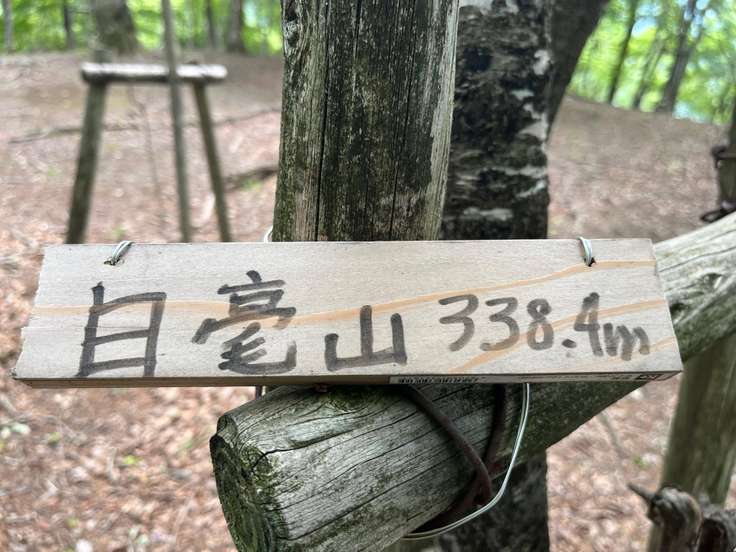 日毫山 338.4m